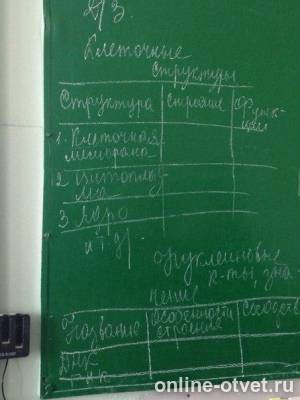 Д/З.
Клеточные
структуры
Структура строение Функ-
ции
1. Клеточная
мембрана
2 Цитоплаз-
ма
3 Ядро
и т.д)
нуклеиновые
к-ты, зна-
чение
Название особенности
строения
ДНК
РНК
online-otvet.ru